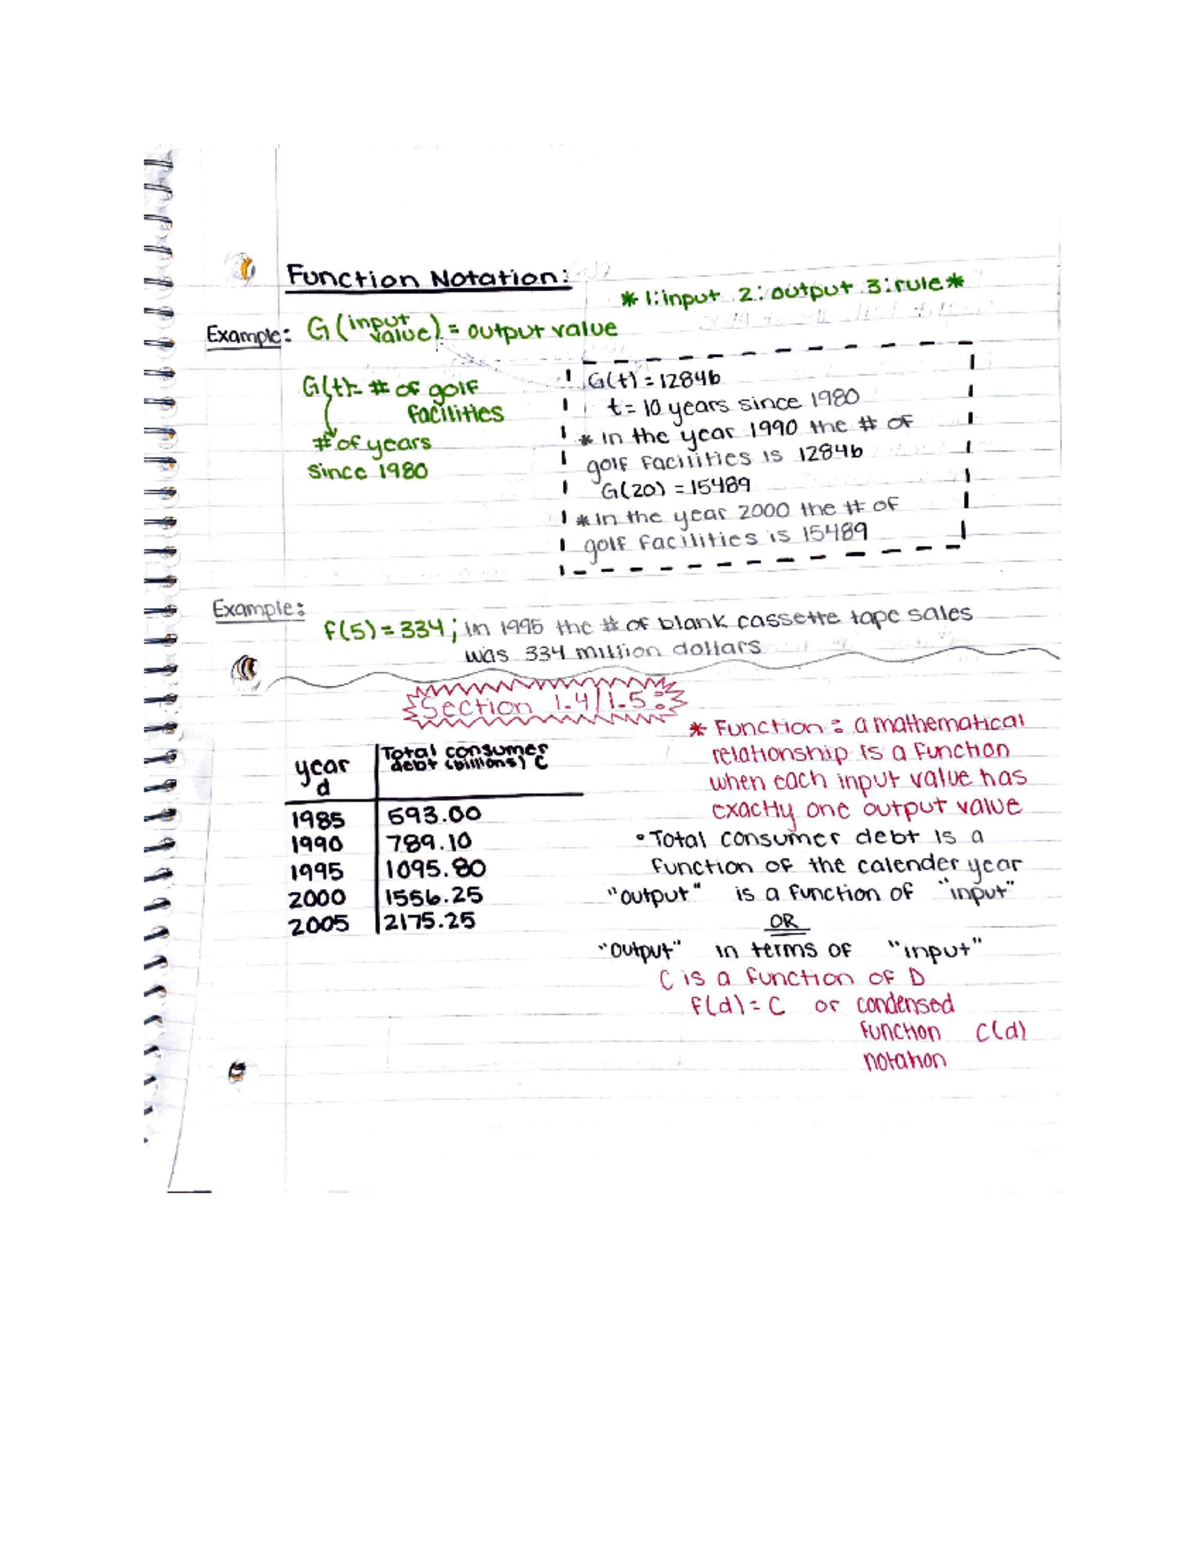 Function Notation:
*1:input 2:output 3:rule*
Example: G(input value) = output value
G(t)= # of golf
facilities
# of years
since 1980
G(t) = 12846
t= 10 years since 1980
* in the year 1990 the # of
golf facilities is 12846
G(20) = 15489
* in the year 2000 the # of
golf facilities is 15489
Example:
f(5) = 334; in 1995 the # of blank cassette tape sales
was 334 million dollars
Section 1.4/1.5:
year
d
Total consumer
debt (billions) C
1985 593.00
1990 789.10
1995 1095.80
2000 1556.25
2005 2175.25
* Function: a mathematical
relationship is a function
when each input value has
exactly one output value
• Total consumer debt is a
function of the calender year
"output" is a function of "input"
OR
"output" in terms of "input"
C is a function of D
f(d) = C or condensed
function C(d)
notation